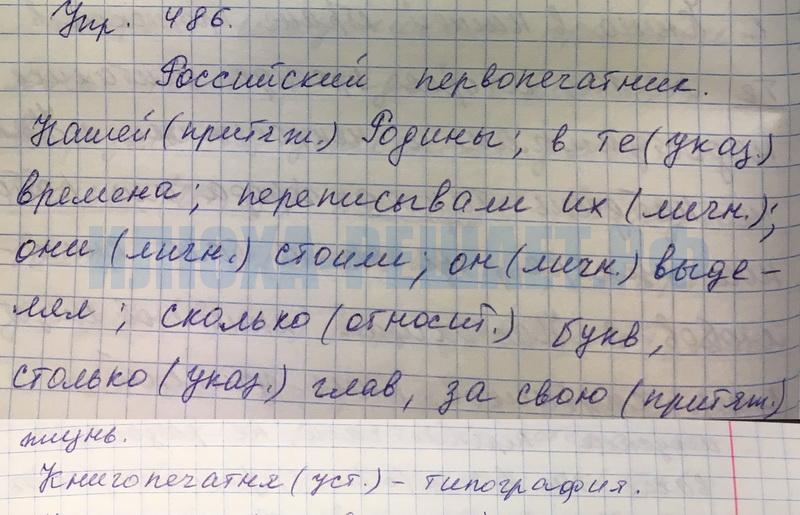 Упр. 486.
Российский первопечатник.
Нашей (притяж.) Родины; в те (указ.)
времена; переписывали их (личн.);
они (личн.) стоили; он (личн.) выде-
лял; сколько (относит.) букв,
столько (указ.) глав, за свою (притяж.)
жизнь.
Книгопечатня (уст.) - типография.
ИЛЮХА-РЕШАЕТ.РФ